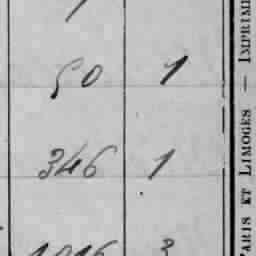 50 1
346 1
3
PARIS ET LIMOGES — IMPRIME